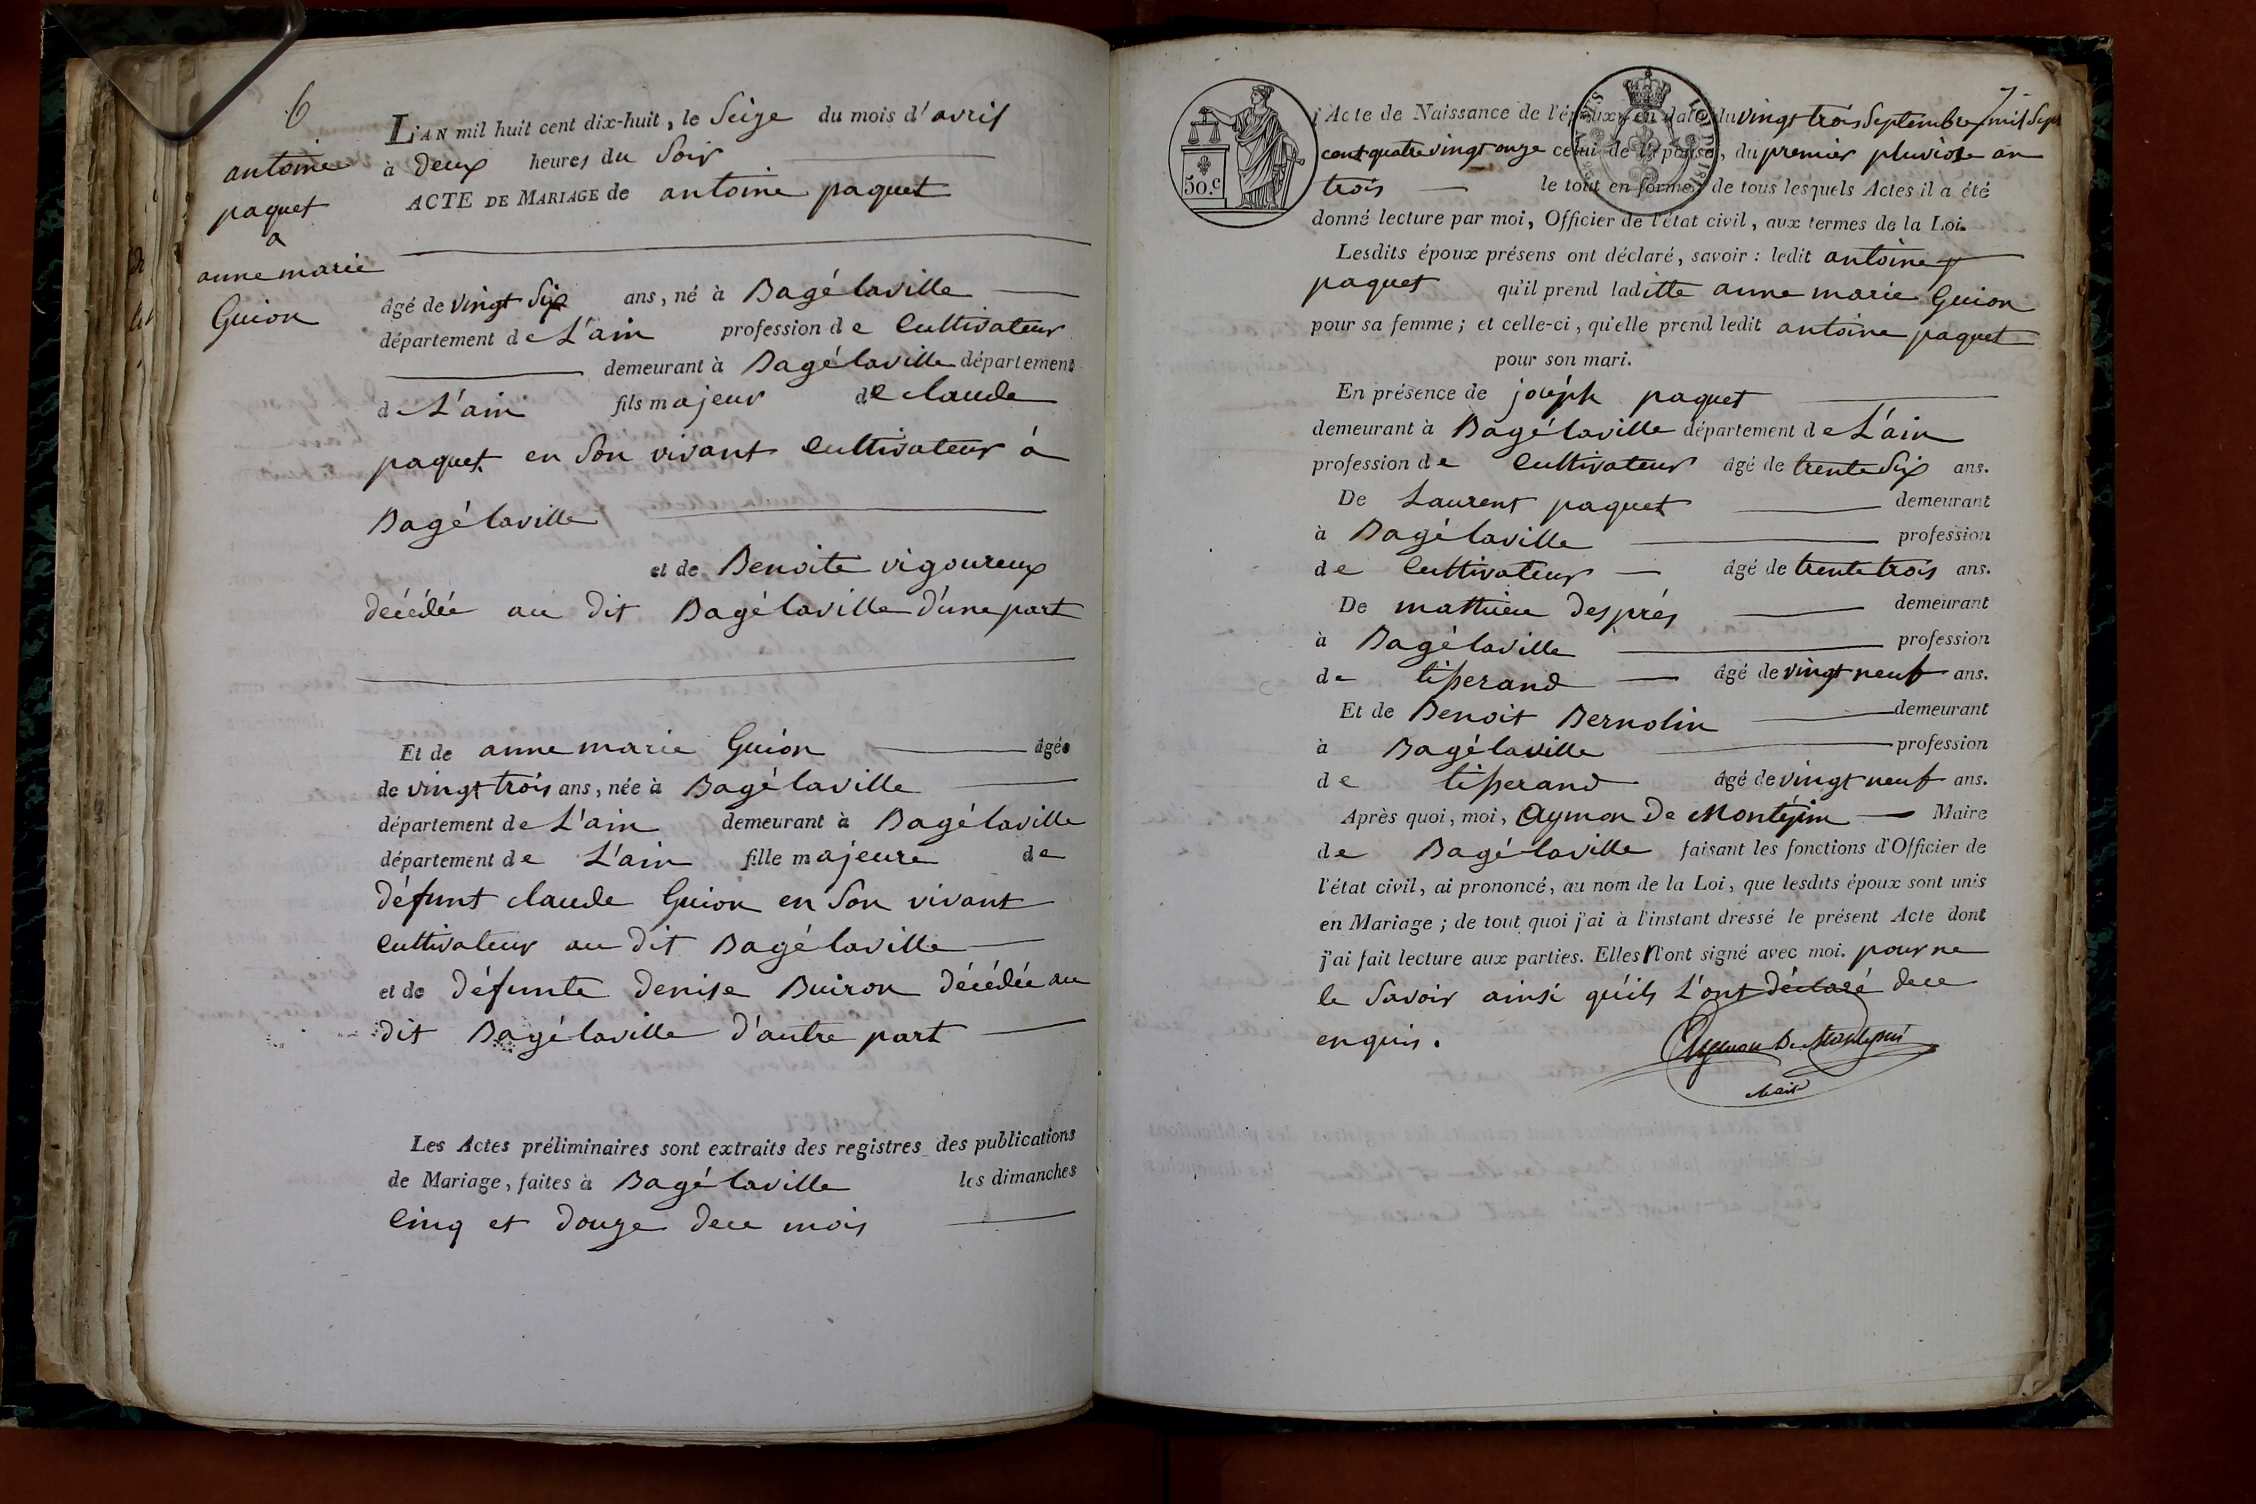 6
antoine
paquet
a
anne marie
Guion
L'AN mil huit cent dix-huit, le Seize du mois d'avril
à deux heures du Soir
ACTE DE MARIAGE de antoine paquet
âgé de vingt Six ans, né à Bagélaville
département de L'ain profession de Cultivateur
demeurant à Bagélaville département
de L'ain fils majeur de claude
paquet en Son vivant Cultivateur à
Bagélaville
et de Benoite vigoureux
décédée au dit Bagélaville d'une part
Et de anne marie Guion âgée
de vingt trois ans, née à Bagélaville
département de L'ain demeurant à Bagélaville
département de L'ain fille majeure de
défunt claude Guion en Son vivant
Cultivateur au dit Bagélaville
et de défunte denise Buiron décédée au
dit Bagélaville d'autre part
Les Actes préliminaires sont extraits des registres des publications
de Mariage, faites à Bagélaville les dimanches
Cinq et douze dece mois
7
50.c
Acte de Naissance de l'époux, en date du vingt trois Septembre mil Sept
cent quatre vingt onze celui de l'épouse, du premier pluviose an
trois le tout en forme; de tous lesquels Actes il a été
donné lecture par moi, Officier de l'état civil, aux termes de la Loi.
Lesdits époux présens ont déclaré, savoir : ledit antoine
paquet qu'il prend laditte anne marie Guion
pour sa femme; et celle-ci, qu'elle prend ledit antoine paquet
pour son mari.
En présence de joseph paquet
demeurant à Bagélaville département de L'ain
profession de Cultivateur âgé de trente Six ans.
De Laurent paquet demeurant
à Bagélaville profession
de Cultivateur âgé de trente trois ans.
De mathieu després demeurant
à Bagélaville profession
de tisserand âgé de vingt neuf ans.
Et de Benoit Bernolin demeurant
à Bagélaville profession
de tisserand âgé de vingt neuf ans.
Après quoi, moi, Aymon De Montépin Maire
de Bagélaville faisant les fonctions d'Officier de
l'état civil, ai prononcé, au nom de la Loi, que lesdits époux sont unis
en Mariage; de tout quoi j'ai à l'instant dressé le présent Acte dont
j'ai fait lecture aux parties. Elles n'ont signé avec moi. pour ne
le Savoir ainsi qu'ils L'ont déclaré dece
enquis.
Aymon De Montépin
Maire